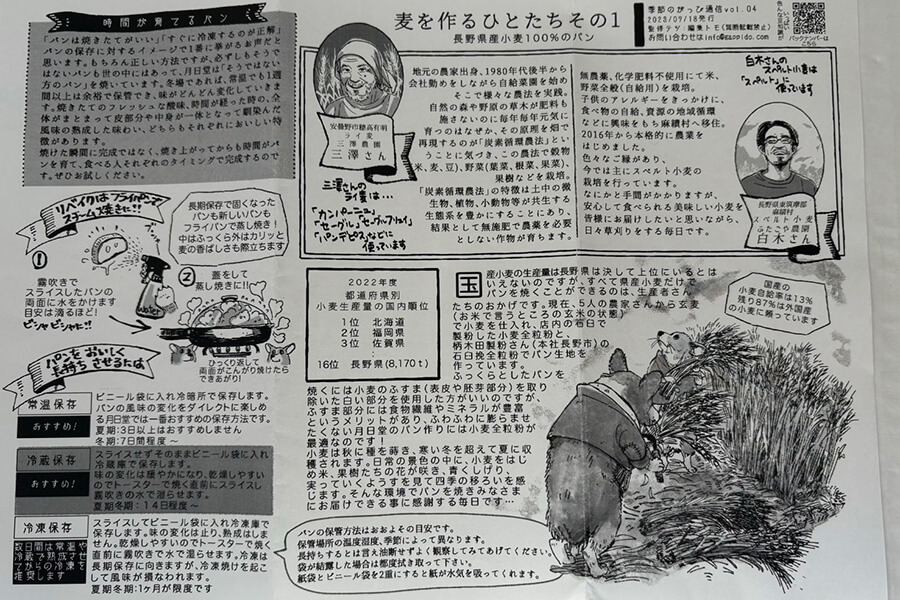 時間が育てるパン
「パンは焼きたてがいい」「すぐに冷凍するのが正解」
パンの保存に対するイメージで1番に挙がるお声だと
思います。もちろん正しい方法ですが、必ずしもそうで
はないパンも世の中にはあって、月日堂は「そうではない
方のパン」を焼いています。冬場であれば、常温でも1週
間以上は余裕で保管でき、味がどんどん変化していきま
す。焼きたてのフレッシュな酸味、時間が経った時の、全
体がまとまって皮部分や中身が一体となって馴染んだ
風味の熟した味わい、どちらもそれぞれにおいしい特
徴があります。
焼けた瞬間に完成ではなく、焼き上がってからも時間がパ
ンを育て、食べる人それぞれのタイミングで完成するので
す。ぜひお試しください。
麦を作るひとたちその1
長野県産小麦100%のパン
季節のがっぴ通信vol.04
2023/07/18発行
監修テツ・編集トモ(無断転載禁止)
お問い合わせはinfo@gappido.com
色んな豆知識が
いっぱい
バックナンバーは
こちら
安曇野市穂高有明
ライ麦
三澤農園
三澤さん
地元の農家出身、1980年代後半から
会社勤めをしながら自給菜園を始め
そこで様々な農法を実践。
自然の森や野原の草木が肥料も
施さないのに毎年毎年元気に
育つのはなぜか、その原理を畑で
再現するのが「炭素循環農法」とい
うことに気づき、この農法で穀物
(米、麦、豆)、野菜(葉菜、根菜、果菜)、
果樹などを栽培。
「炭素循環農法」の特徴は土中の微
生物、植物、小動物等が共生する
生態系を豊かにすることにあり、
結果として無施肥で農薬を必要
としない作物が育ちます。
三澤さんの
ライ麦は…
「カンパーニュ」
「セーグル」「セーグルフリュイ」
「パンデピス」などに
使っています
無農薬、化学肥料不使用にて米、
野菜全般(自給用)を栽培。
子供のアレルギーをきっかけに、
食べ物の自給、資源の地域循環
などに興味をもち麻績村へ移住。
2016年から本格的に農業を
はじめました。
色々なご縁があり、
今では主にスペルト小麦の
栽培を行っています。
なにかと手間がかかりますが、
安心して食べられる美味しい小麦を
皆様にお届けしたいと思いながら、
日々草刈りをする毎日です。
白木さんの
スペルト小麦は
「スペルト」に
使っています
長野県東筑摩郡
麻績村
スペルト小麦
ふたごや農園
白木さん
リベイクはフライパンで
スチーム焼きに!!
長期保存で固くなった
パンも新しいパンも
フライパンで蒸し焼き!
中はふっくら外はカリッと
麦の香ばしさも際立ちます
1
霧吹きで
スライスしたパンの
両面に水をかけます
目安は滴るほど!
ビシャビシャに!!
water
2
蓋をして
蒸し焼きに!!
ひっくり返して
両面がこんがり焼けたら
できあがり!
パンをおいしく
長持ちさせるには
常温保存
おすすめ!
ビニール袋に入れ冷暗所で保存します。
パンの風味の変化をダイレクトに楽しめ
る月日堂では一番おすすめの保存方法です。
夏期:3日以上はおすすめしません
冬期:7日間程度〜
冷蔵保存
おすすめ!
スライスせずそのままビニール袋に入れ
冷蔵庫で保存します。
味の変化は緩やかになり、乾燥しやすい
のでトースターで焼く直前にスライスし
霧吹きの水で湿らせます。
夏期冬期:14日程度〜
冷凍保存
数日間は常温や
冷蔵で熟成させ
てからの冷凍を
推奨します
スライスしてビニール袋に入れ冷凍庫で
保存します。味の変化は止り、熟成はしま
せん。乾燥しやすいのでトースターで焼く
直前に霧吹きで水で湿らせます。冷凍は
長期保存に向きますが、冷凍焼けを起こ
して風味が損なわれます。
夏期冬期:1ヶ月が限度です
2022年度
都道府県別
小麦生産量の国内順位
1位 北海道
2位 福岡県
3位 佐賀県
:
16位 長野県(8,170t)
国産小麦の生産量は長野県は決して上位にいるとは
いえないのですが、すべて県産小麦だけで
パンを焼くことができるのは、生産者さん
たちのおかげです。現在、5人の農家さんから玄麦
(お米で言うところの玄米の状態)
で小麦を仕入れ、店内の石臼で
製粉した小麦全粒粉と
柄木田製粉さん(本社長野市)の
石臼挽全粒粉でパン生地を
作っています。
ふっくらとしたパンを
焼くには小麦のふすま(表皮や胚芽部分)を取り
除いた白い部分を使用した方がいいのですが、
ふすま部分には食物繊維やミネラルが豊富
というメリットがあり、ふわふわに膨らませ
たくない月日堂のパン作りには小麦全粒粉が
最適なのです!
小麦は秋に種を蒔き、寒い冬を超えて夏に収
穫されます。日常の景色の中に、小麦をはじ
め米、果樹たちの花が咲き、青くしげり、
実っていくようすを見て四季の移ろいを感
じます。そんな環境でパンを焼きみなさま
にお届けできる事に感謝する毎日です…
国産の
小麦自給率は13%
残り87%は外国産
の小麦に頼っています
パンの保管方法はおおよその目安です。
保管場所の温度湿度、季節によって異なります。
長持ちするとは言え油断せずよく観察してみてあげてください。
袋が結露した場合は都度拭き取って下さい。
紙袋とビニール袋を2重にすると紙が水気を吸ってくれます。